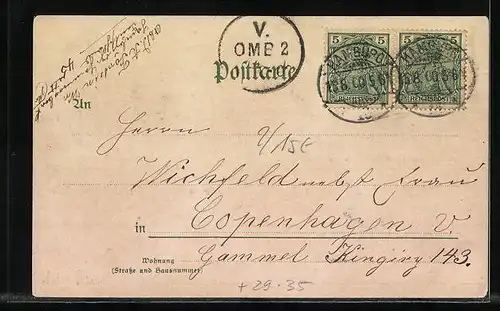 V.
OMB 2
5 5
Postkarte
HAMBURG HAMBURG
REICHSPOST
An
Herrn
2/15E
Wichfeld nebst Frau
in Copenhagen V.
Gammel Kingivy 143.
Wohnung
(Straße und Hausnummer)
+29-35